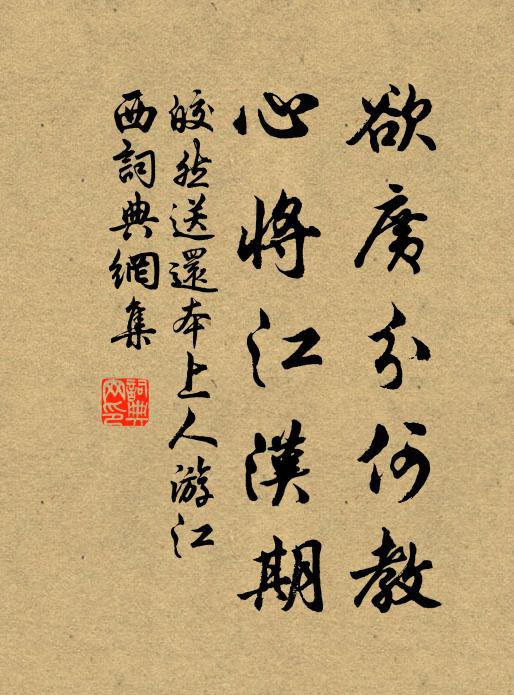 欲廣分何教
心將江漢期
皎然送還本上人游江
西詞典網集
詞典網印